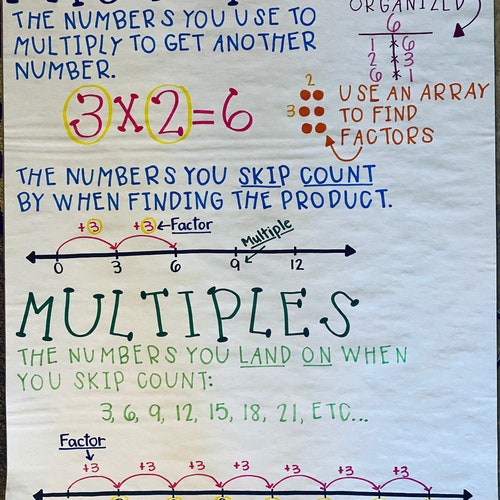 THE NUMBERS YOU USE TO
MULTIPLY TO GET ANOTHER
NUMBER.
3 X 2 = 6
ORGANIZED
6
1 x 6
2 x 3
6 x 1
2
3
USE AN ARRAY
TO FIND
FACTORS
THE NUMBERS YOU SKIP COUNT
BY WHEN FINDING THE PRODUCT.
+3 +3 ← Factor
Multiple
0 3 6 9 12
MULTIPLES
THE NUMBERS YOU LAND ON WHEN
YOU SKIP COUNT:
3, 6, 9, 12, 15, 18, 21, ETC...
Factor
+3 +3 +3 +3 +3 +3 +3